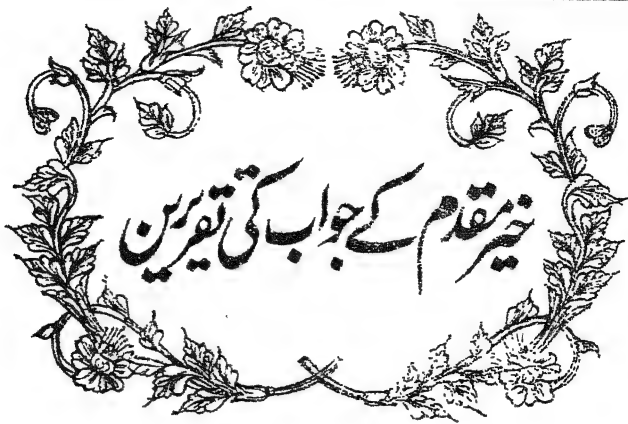 خیر مقدم کے جواب کی تقریریں